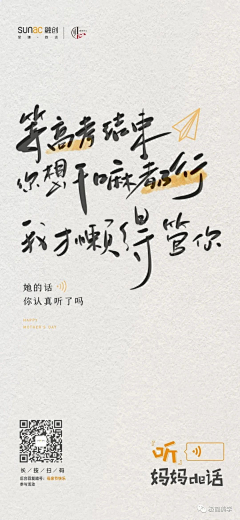 SUNAC 融创
等高考结束
你想干嘛都行
我才懒得管你
她的话
你认真听了吗
HAPPY
MOTHER'S DAY
听
妈妈de话
长/按/扫/码